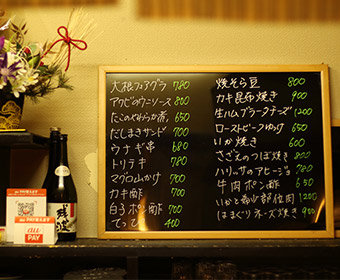 大根フォアグラ 780
アワビのウニソース 800
たこのやわらか煮 650
だしまきサンド 700
ウナギ串 680
トリテキ 780
マグロ山かけ 700
カキ酢 700
白子ポン酢 700
てっさ
焼そら豆 800
カキ昆布焼き 900
生ハムブラークチーズ 1200
ローストビーフゆッケ 650
いか焼き 600
さざえのつぼ焼き 800
ハリッサのアヒージョ 780
牛肉ポン酢 650
いかと希少部位肉 1200
はまぐりチーズ焼き 950
残波
au
PAY